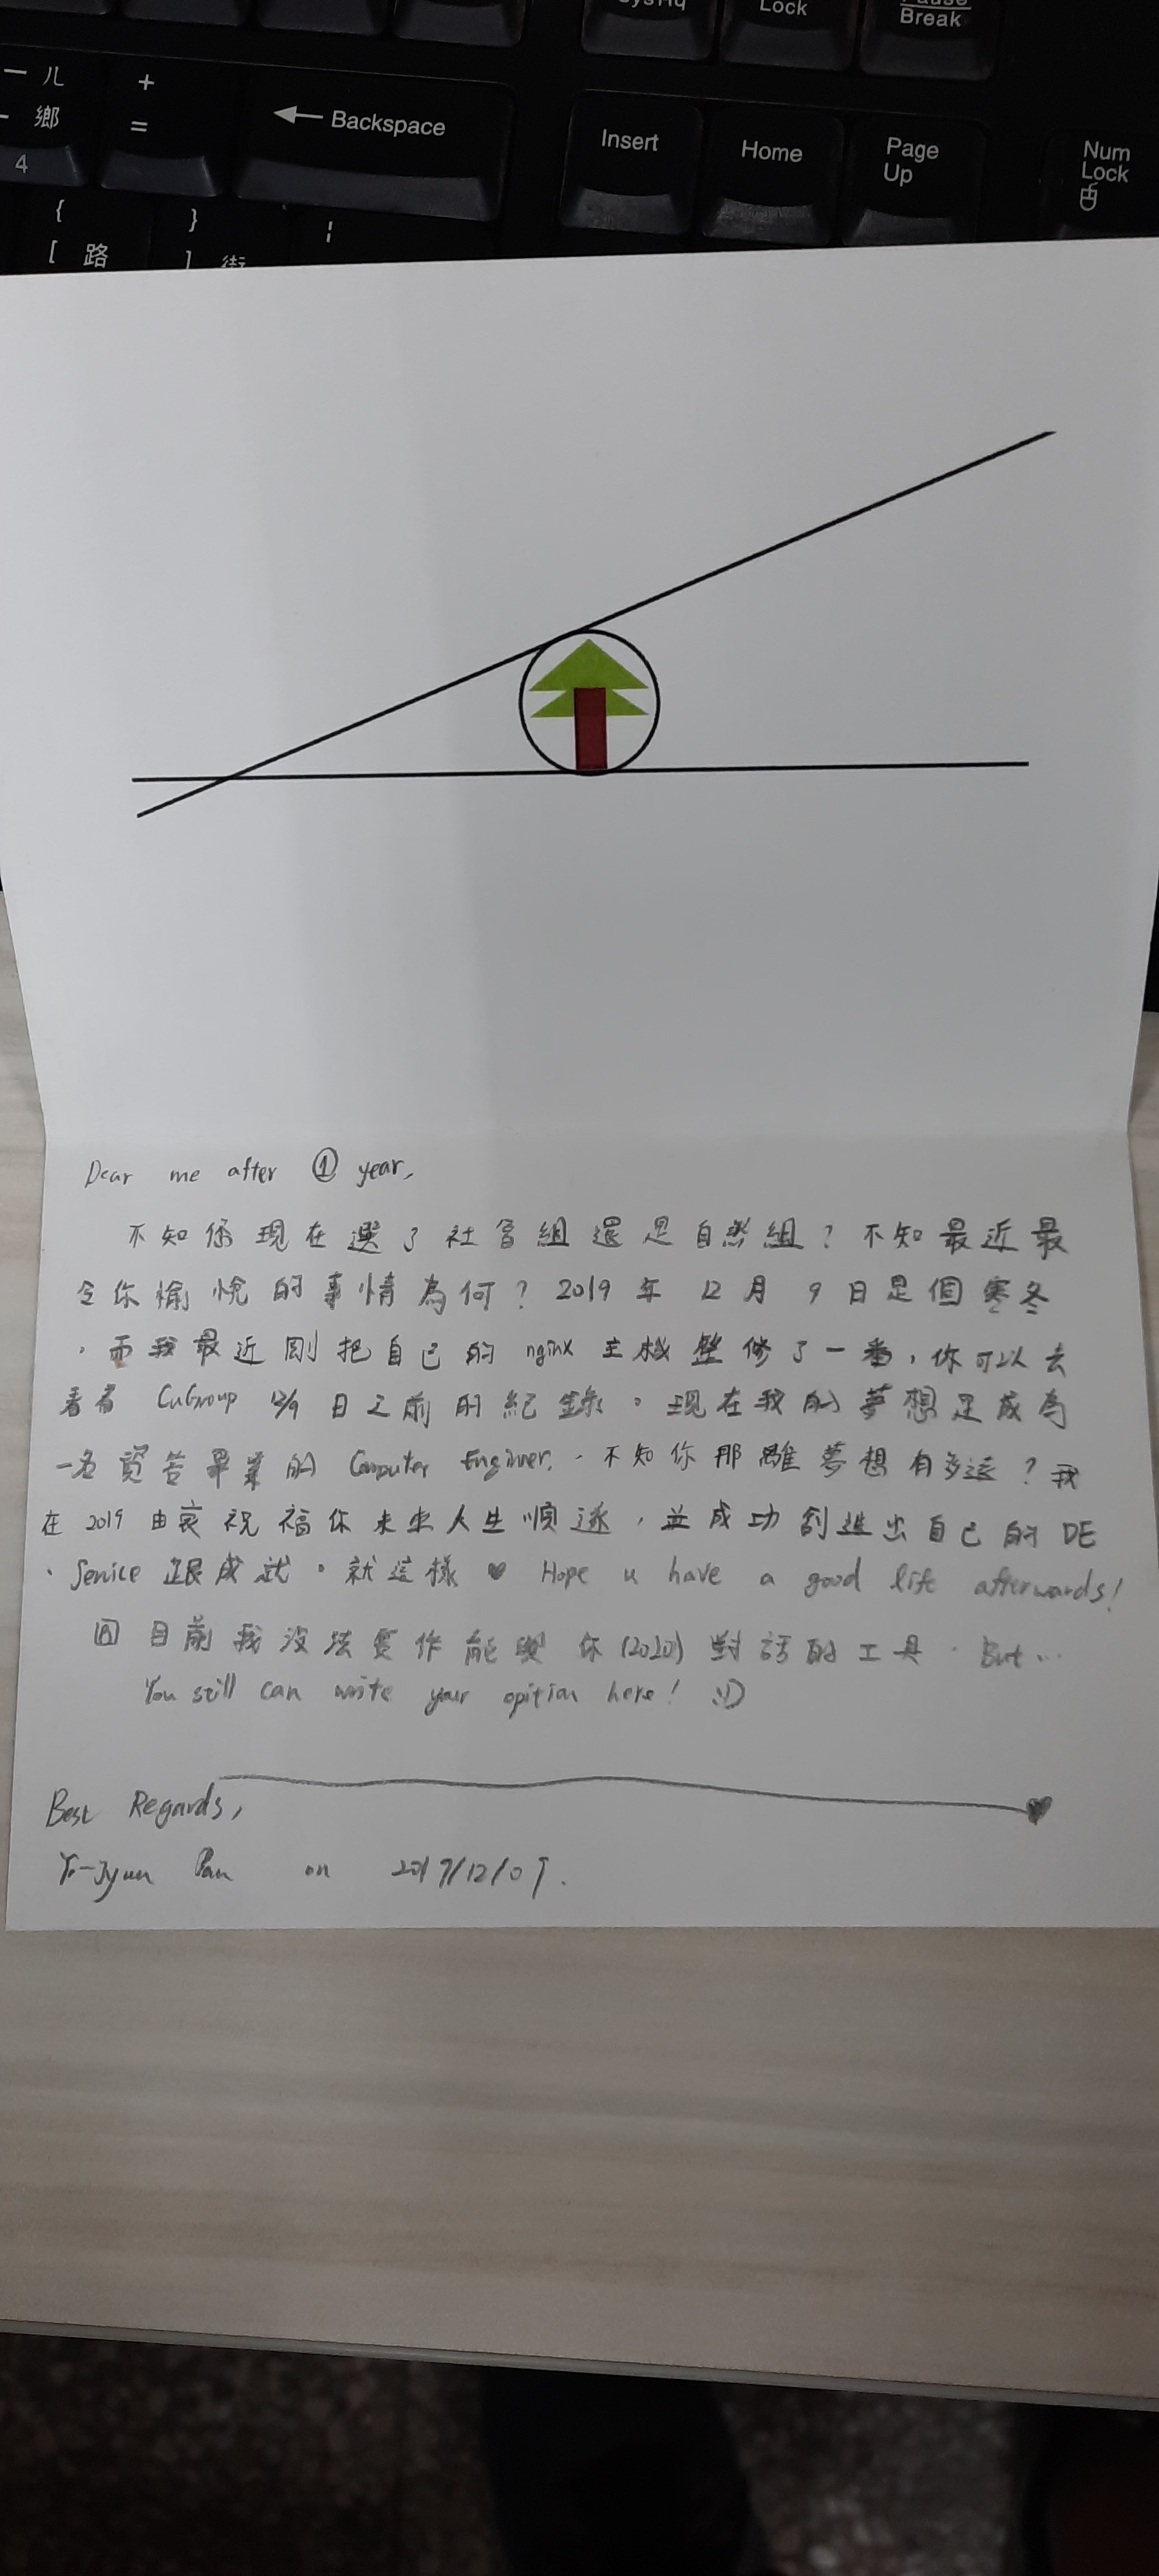 SysRq
Lock
Pause
Break
一 ㄦ
- 鄉
4
+
=
← Backspace
Insert
Home
Page
Up
Num
Lock
{
[ 路
}
] 街
¦
Dear me after ① year,
不知你現在選了社會組還是自然組？不知最近最
令你愉悅的事情為何？2019 年 12 月 9 日是個寒冬
，而我最近剛把自己的 nginx 主機整修了一番，你可以去
看看 CuGroup 12/9 日之前的紀錄。現在我的夢想是成為
一名資管畢業的 Computer Engineer. 不知你那離夢想有多遠？我
在 2019 由衷祝福你未來人生順遂，並成功創造出自己的 DE
、Service 跟成就。就這樣 ♥ Hope u have a good life afterwards!
目前我沒法實作能與你(2020)對話的工具。But...
You still can write your opition here! :D
Best Regards,
Yi-Jyun Pan on 2019/12/09.